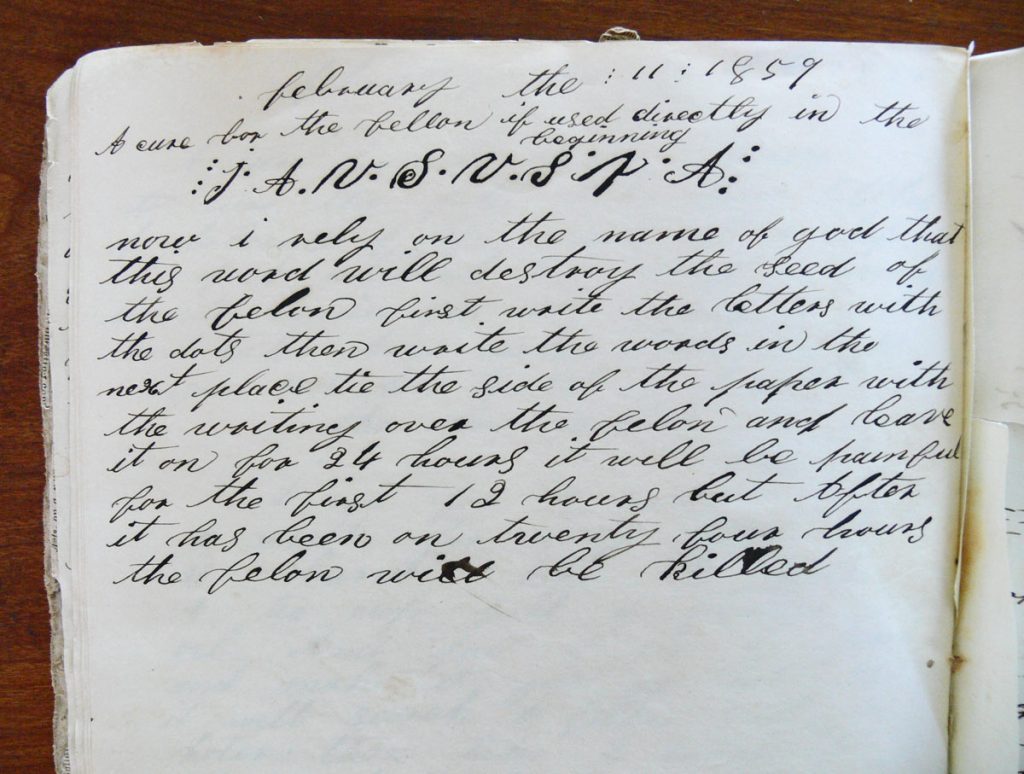 february the : 11 : 1859
A cure for the fellon if used directly in the
beginning
J. A. V. S. V. S. A
now i rely on the name of god that
this word will destroy the seed of
the felon first write the letters with
the dots then write the words in the
next place tie the side of the paper with
the writing over the felon and leave
it on for 24 hours it will be painful
for the first 12 hours but After
it has been on twenty four hours
the felon will be killed